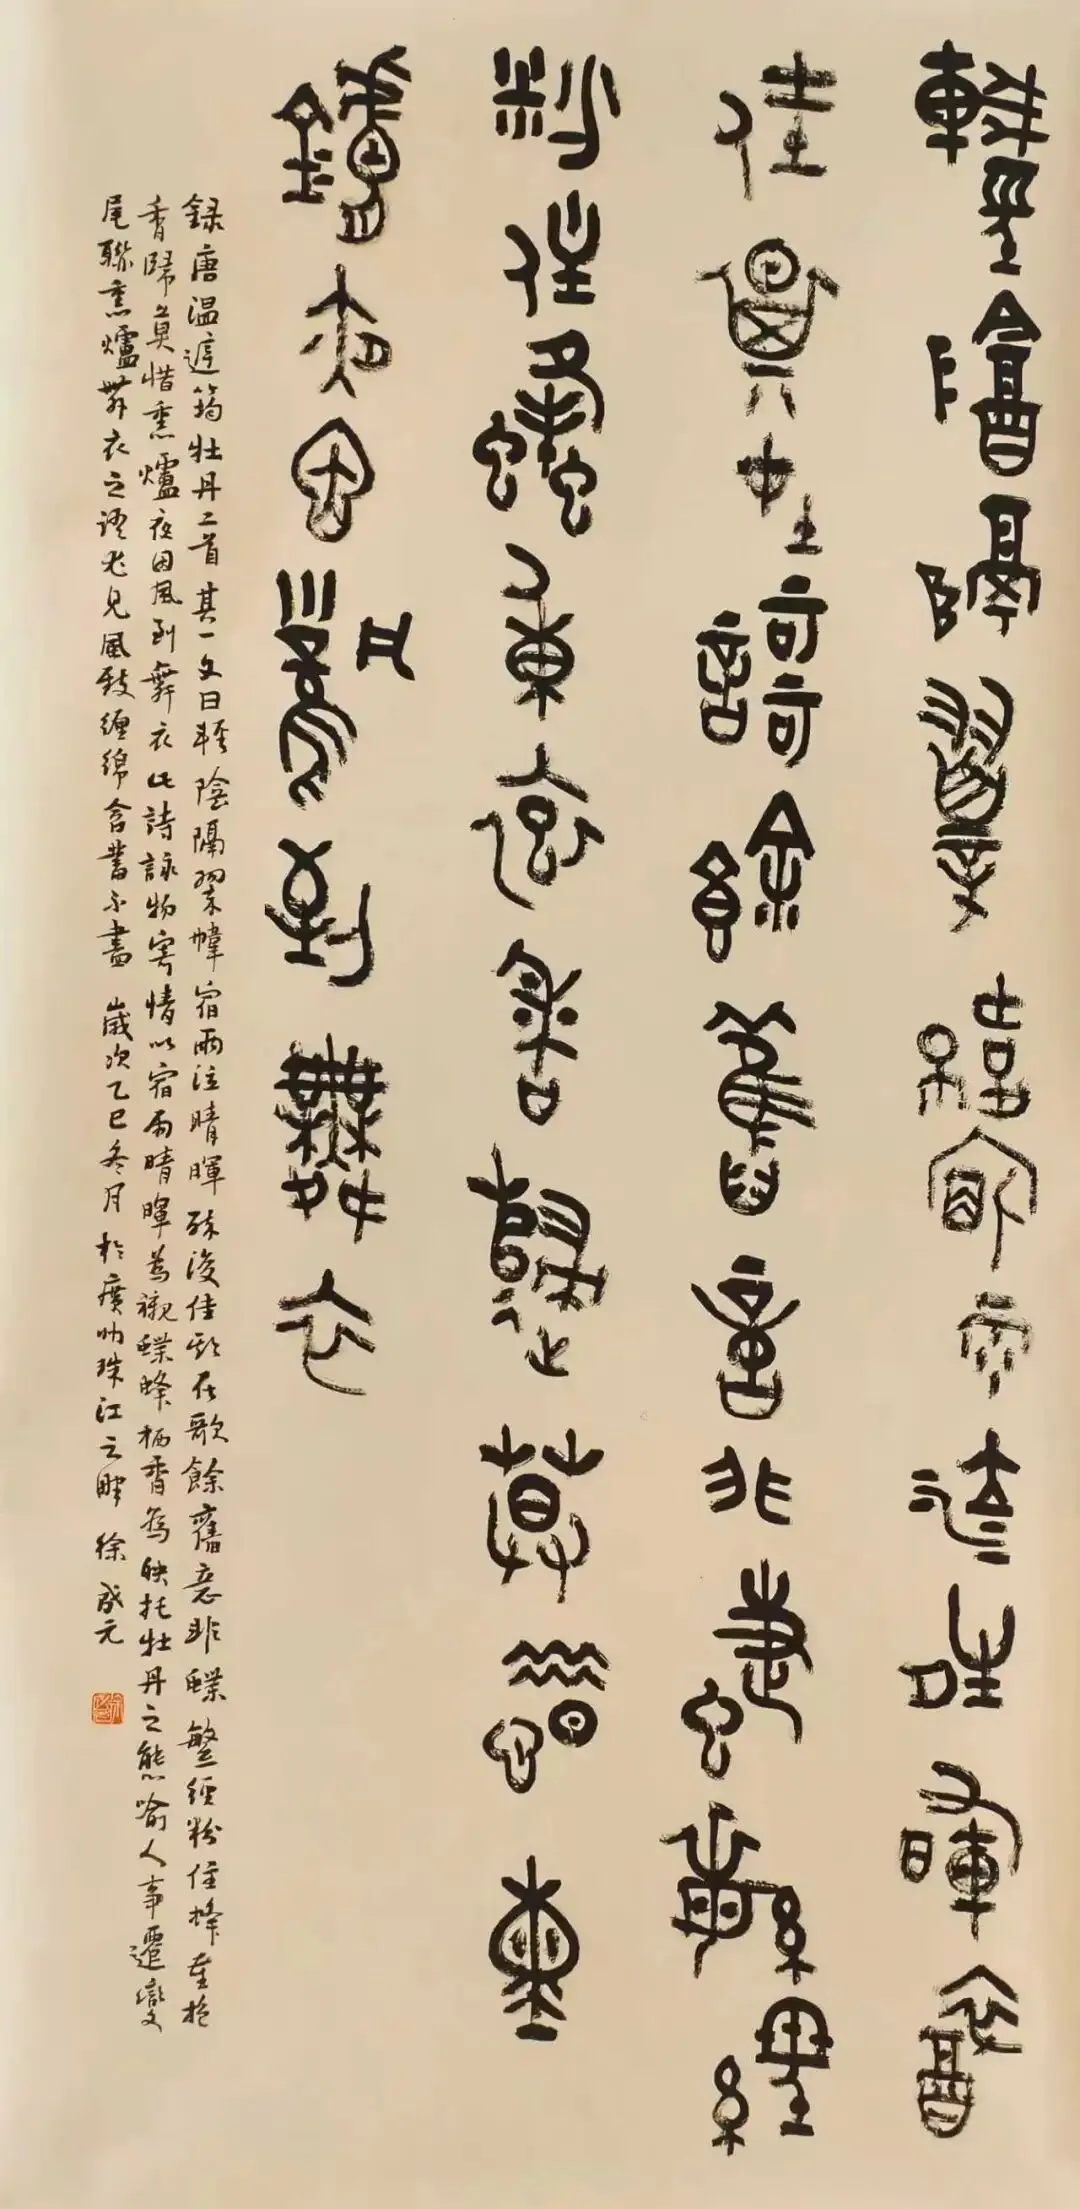 輕陰隔翠幃宿雨泣晴暉醉
佳期在歌餘舊意非蝶繁經
粉住蜂重抱香歸莫惜熏
爐夜因風到舞衣
錄唐溫庭筠牡丹二首其一文曰輕陰隔翠幃宿雨泣晴暉醉後佳期在歌餘舊意非蝶繁經粉住蜂重抱
香歸莫惜熏爐夜因風到舞衣此詩詠物寄情以宿雨晴暉為襯蝶蜂栖香為映托牡丹之態喻人事遷變
尾聯熏爐舞衣之語尤見風致纏綿含蓄不盡 歲次乙巳冬月於廣州珠江之畔 徐成元